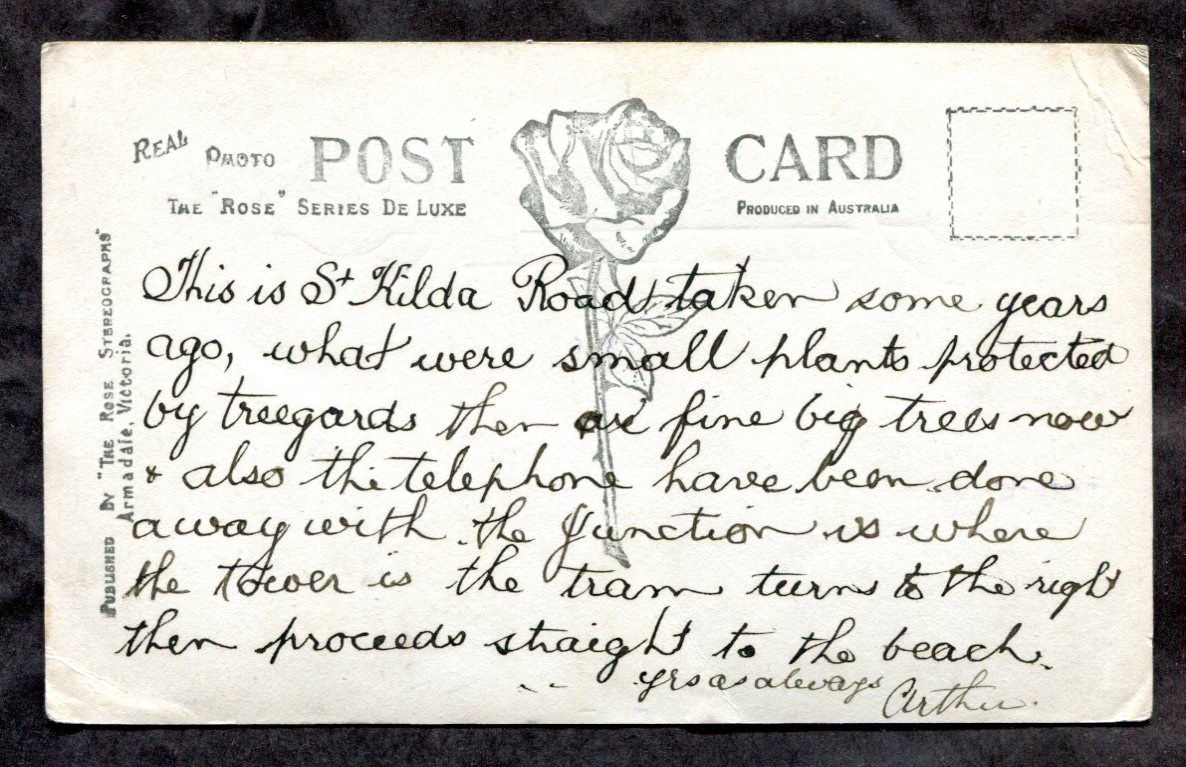 REAL PHOTO POST CARD
THE "ROSE" SERIES DE LUXE
PRODUCED IN AUSTRALIA
PUBLISHED BY "THE ROSE STEREOGRAPHS"
Armadale, Victoria.
This is St Kilda Road taken some years
ago, what were small plants protected
by treegards then are fine big trees now
& also the telephone have been done
away with. the Junction is where
the tower is the tram turns to the right
then proceeds straight to the beach.
yrs as always
Arthur.